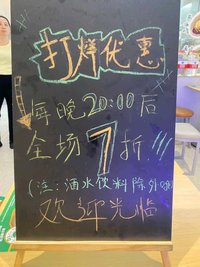 打烊优惠
每晚20:00后
全场7折!!!
(注:酒水饮料除外哦)
欢迎光临